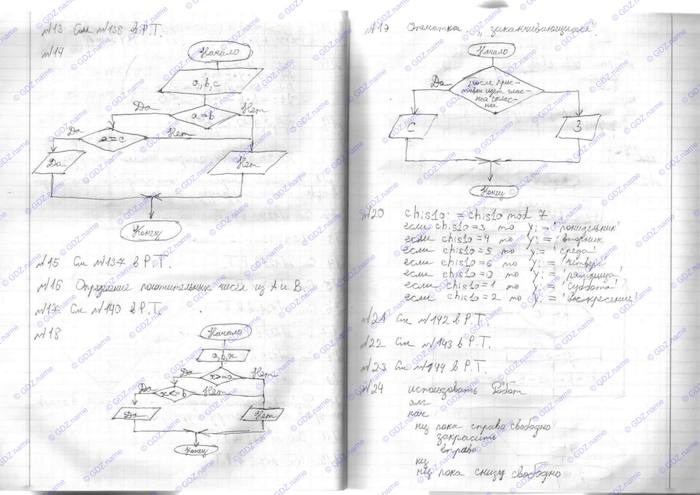 №13 См №138 в Р.Т.
№14
Начало
a, b, c
Да
Нет
a=b
Да
a=c
Нет
Да
Нет
Конец
№15 См №137 в Р.Т.
№16 Определение положительных чисел из А и В.
№17 См №140 в Р.Т.
№18
Начало
a, b, x
Да
x>=a
Нет
Да
x<=b
Нет
Да
Нет
Конец
№19 Опечатка „ заканчивающуюся.
Начало
Да
после прис-
тавки идет глас-
ной
С
З
Конец
№20 chislo:=chislo mod 7
если chislo=3 то y:='понидельник'
если chislo=4 то y:='вторник
если chislo=5 то y:='среда'
если chislo=6 то y:='четверг'
если chislo=0 то y:='пятница'
если chislo=1 то y:='суббота'
если chislo=2 то y:='воскресение'
№21 См №142 в Р.Т.
№22 См №143 в Р.Т.
№23 См №144 в Р.Т.
№24 использовать Робот
алг
нач
нц пока справа свободно
закрасить
вправо
кц
нц пока снизу свободно
© GDZ.name